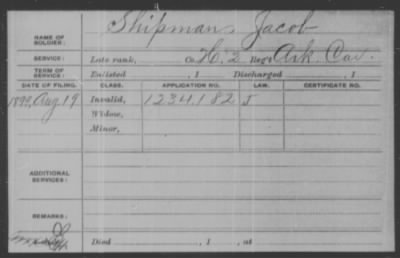 NAME OF SOLDIER: Shipman Jacob
SERVICE: Late rank, Co. H, 2 Reg't Ark. Cav.
TERM OF SERVICE: Enlisted , 1 Discharged , 1
DATE OF FILING. CLASS. APPLICATION NO. LAW. CERTIFICATE NO.
1899, Aug 19 Invalid, 1234182 J
Widow,
Minor,
ADDITIONAL SERVICES:
REMARKS:
Died , 1 , at